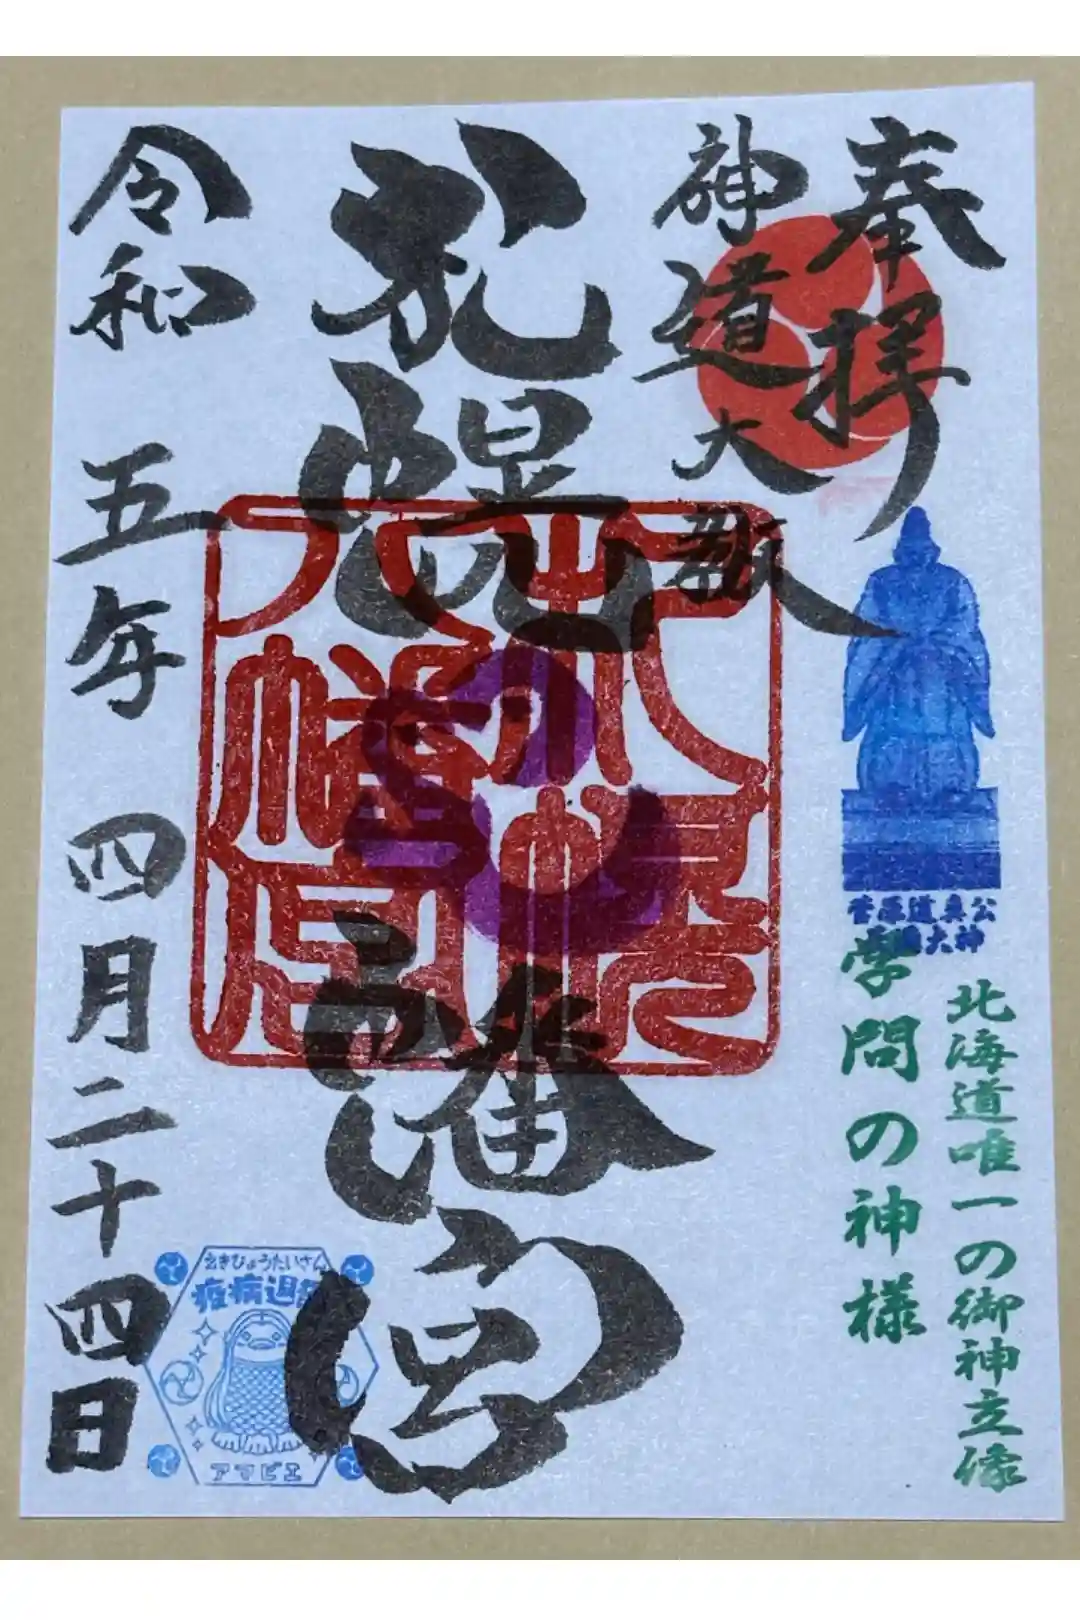 奉拝
神道大教
札幌八幡宮
令和五年四月二十四日
札幌
八幡宮
菅原道真公
大神
北海道唯一の御神立像
学問の神様
えきびょうたいさん
疫病退
アマビエ